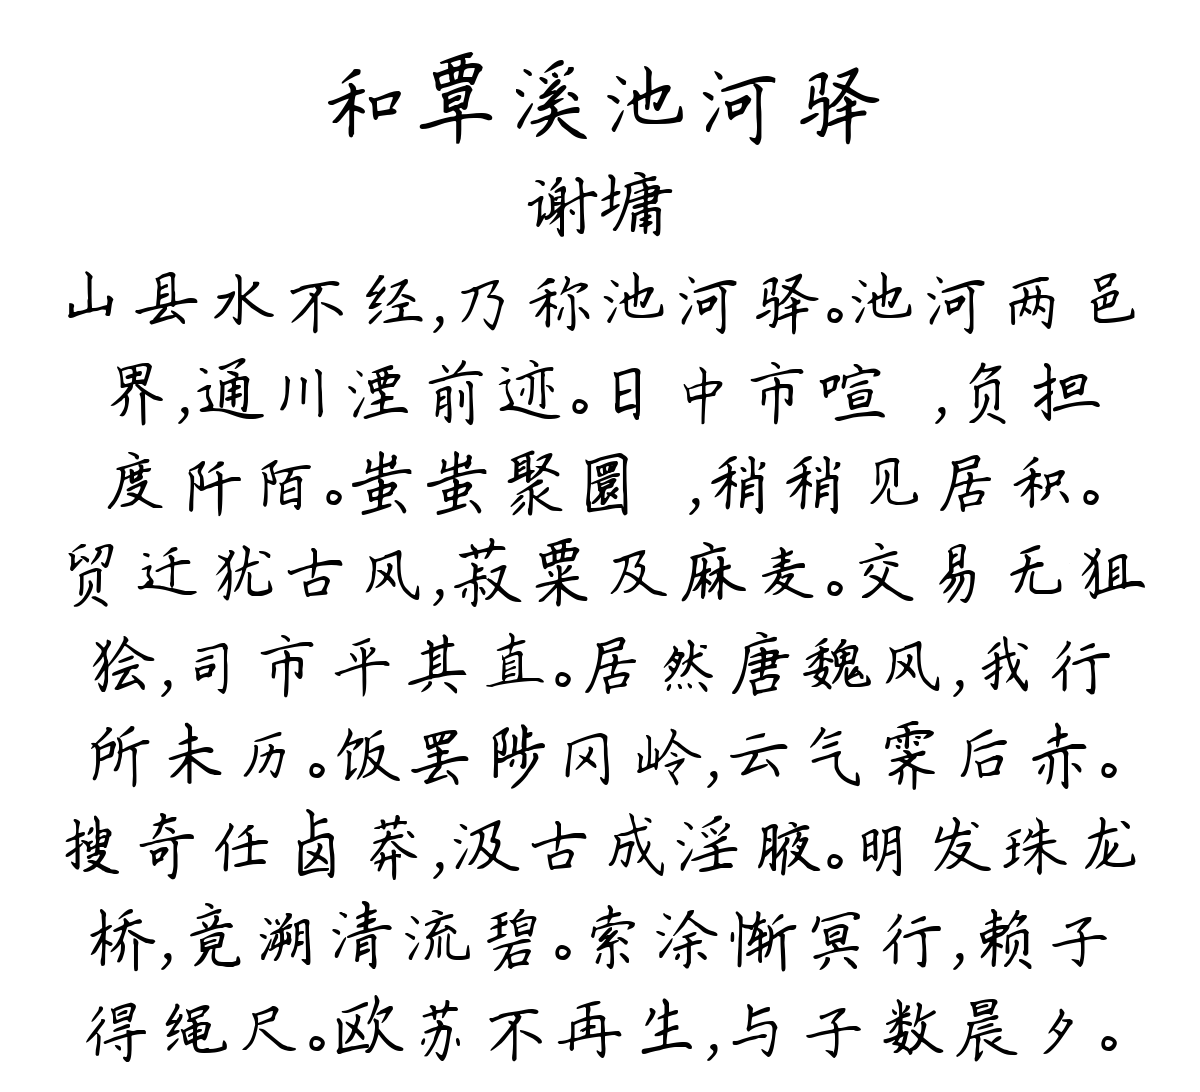 和覃溪池河驿
谢墉
山县水不经,乃称池河驿。池河两邑
界,通川湮前迹。日中市喧 ,负担
度阡陌。蚩蚩聚圜 ,稍稍见居积。
贸迁犹古风,菽粟及麻麦。交易无狙
狯,司市平其直。居然唐魏风,我行
所未历。饭罢陟冈岭,云气霁后赤。
搜奇任卤莽,汲古成淫腋。明发珠龙
桥,竟溯清流碧。索涂惭冥行,赖子
得绳尺。欧苏不再生,与子数晨夕。